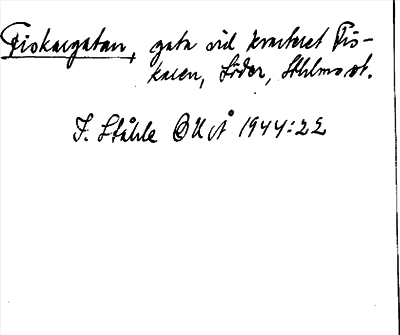 Fiskargatan, gata vid kvarteret Fis-
karen, Söder, Sthlms st.
I. Ståhle OUÅ 1944:22